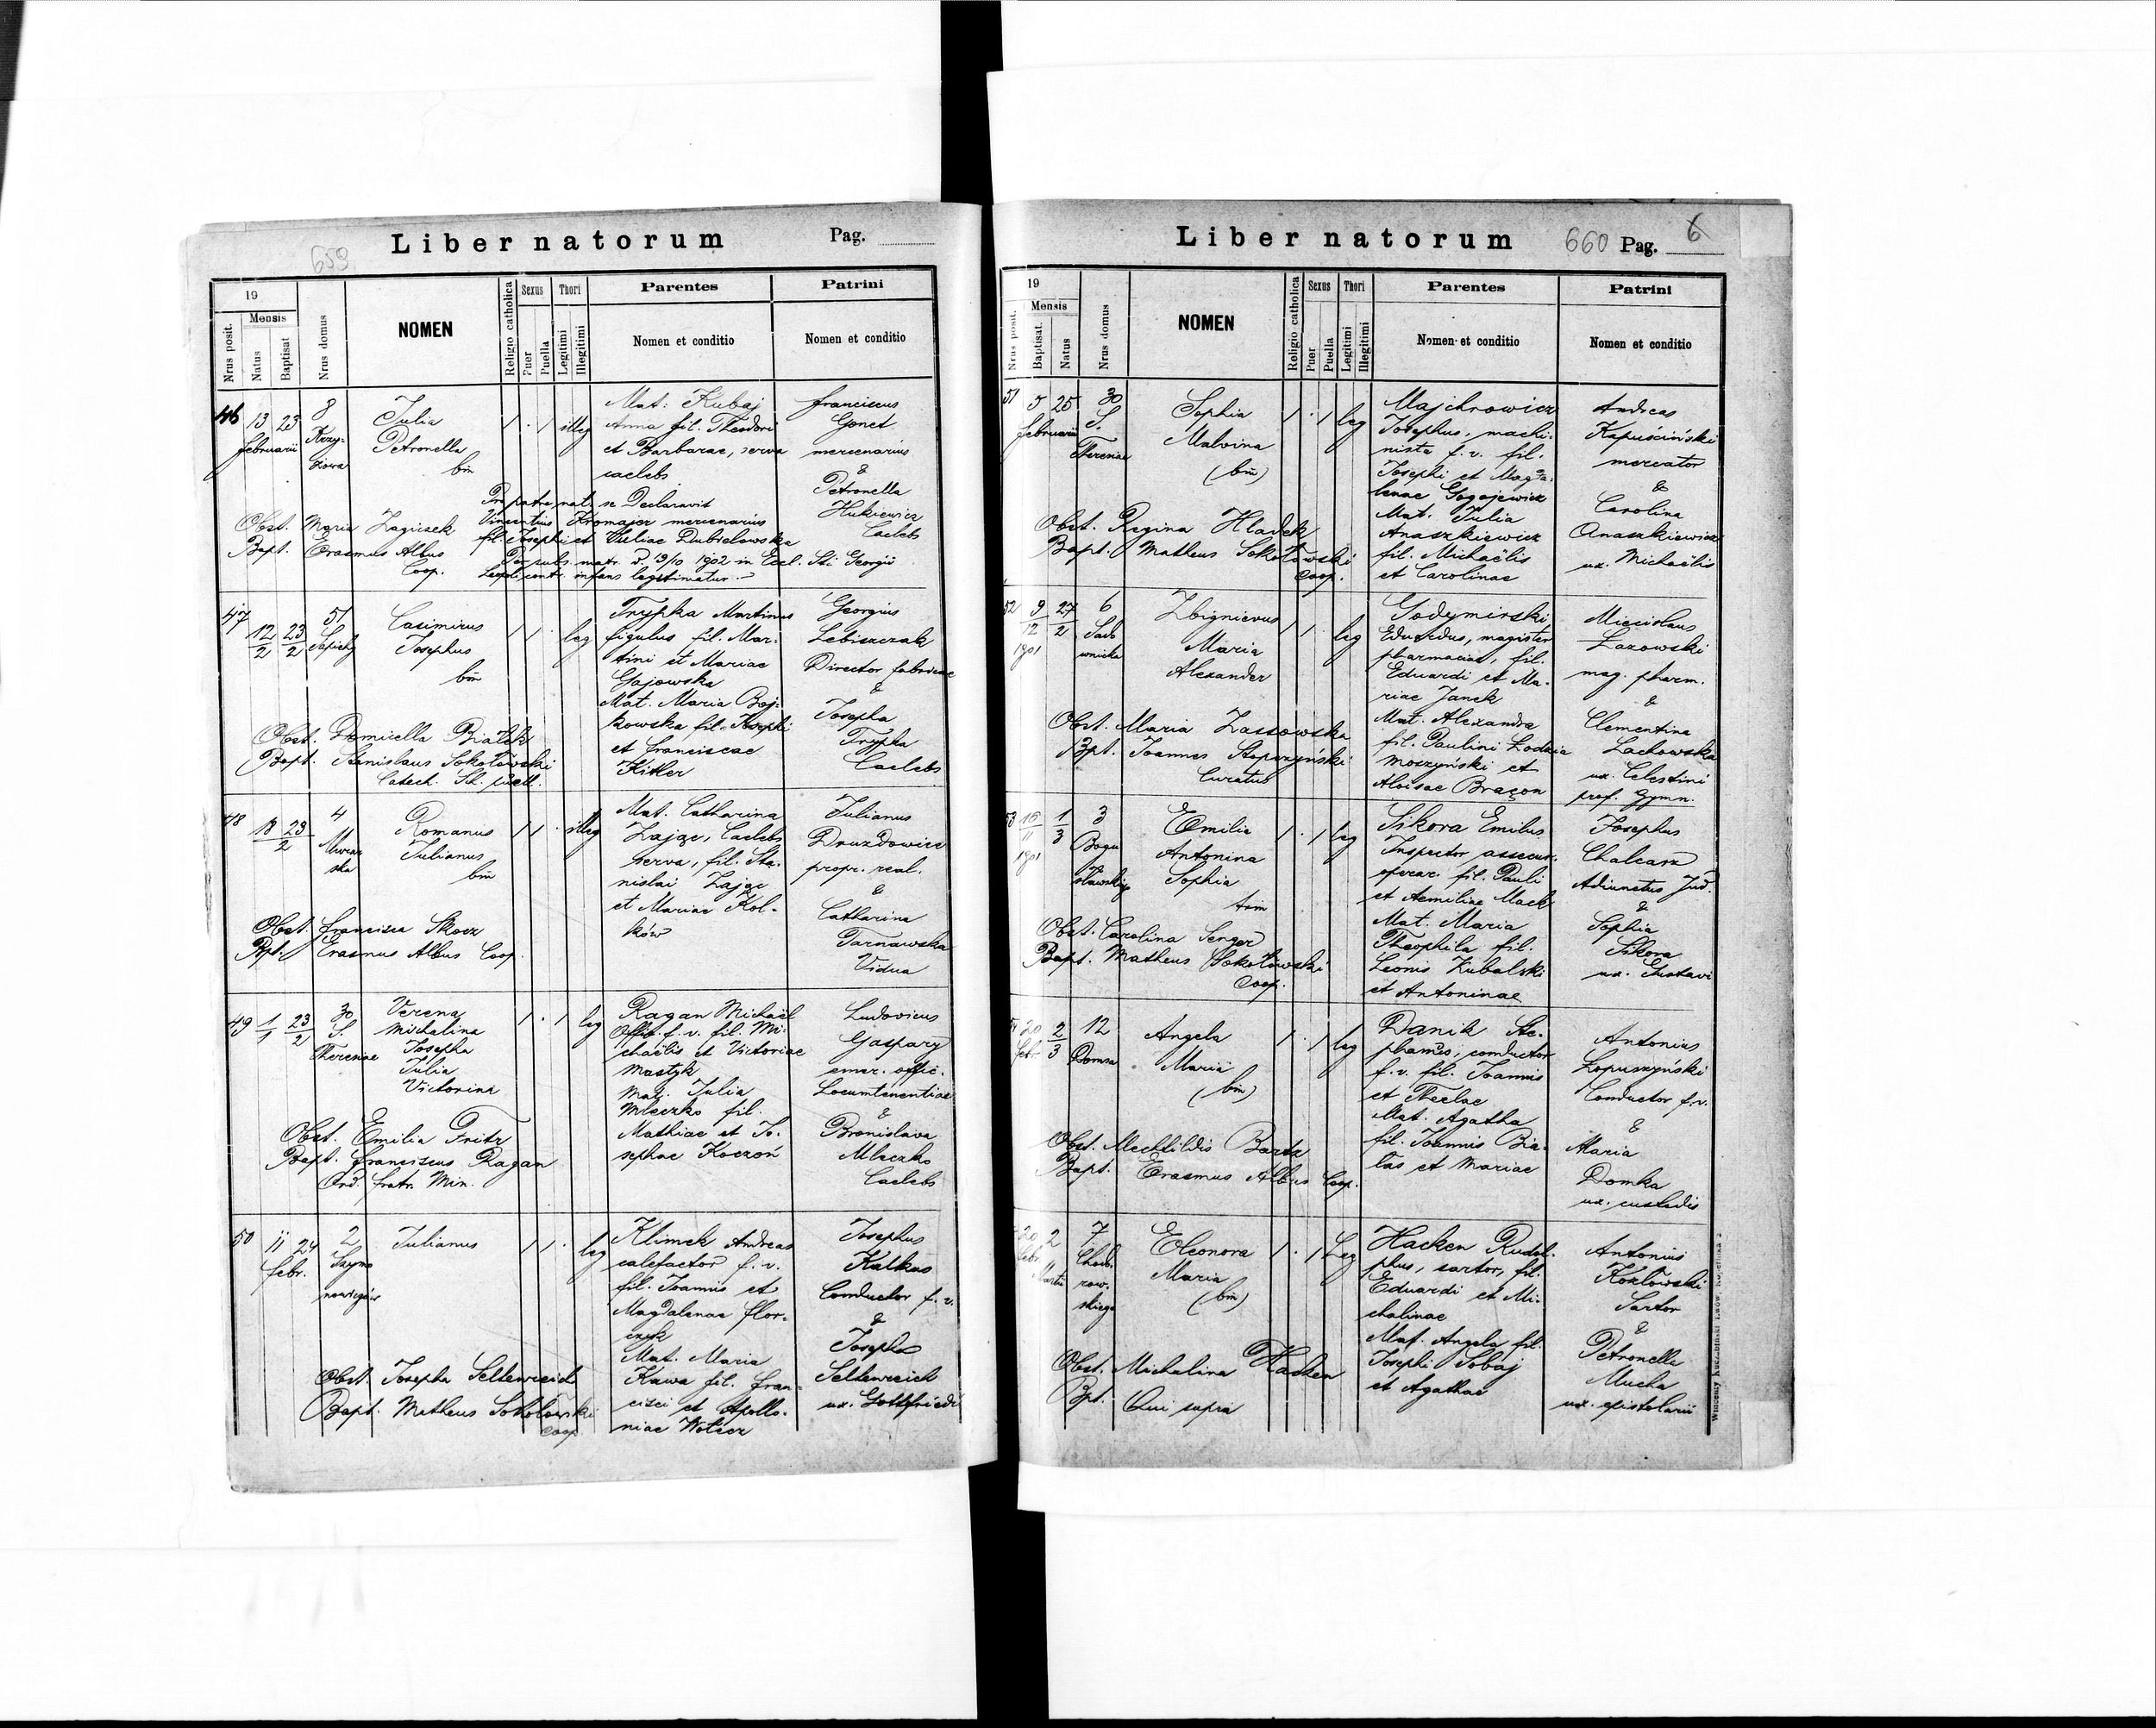 Liber natorum
Pag.
659
19
Mensis
Nrus posit.
Natus
Baptisat
Nrus domus
NOMEN
Religio catholica
Sexus
Puer
Puella
Thori
Legitimi
Illegitimi
Parentes
Nomen et conditio
Patrini
Nomen et conditio
46 13 23 februarii
8
Julia
Petronella
bin
illeg
Mat: Kubaj
Anna fil. Theodori
et Barbarae, serva
caelebs
franciscus
Gonet
mercenarius
&
Petronella
Hukiewicz
Caelebs
Pro patre nat. se Declaravit
Vincentius Kromajer mercenarius
fil. Josephi et Juliae Dubielowska
Per subs. matr. d. 19/10 1902 in Eccl. Sti Georgii
Leopoli contr. infans legitimatur.
Obst. Maria Zagrisek
Bapt. Erasmus Albus
Coop.
47 12/2 23/2
51
Sapiehy
Casimirus
Josephus
bin
leg
Trypka Martinus
figulus fil. Mar-
tini et Mariae
Gajowska
Mat. Maria Boj-
kowska fil. Josephi
et franciscae
Kitler
Georgius
Lebiszczak
Director fabricae
&
Josepha
Trypka
Caelebs
Obst. Domicella Białek
Bapt. Stanislaus Sokołowski
Catech. Sch. puell.
48 18 23/2
4
Murar
ska
Romanus
Julianus
bin
illeg
Mat. Catharina
Zając, Caelebs
serva, fil. Sta-
nislai Zając
et Mariae Kol-
ków
Julianus
Druzdowicz
propr. real.
&
Catharina
Tarnawska
Vidua
Obst. francisca Skocz
Bpt. Erasmus Albus Coop.
49 1/1 23/2
30
S.
Theresiae
Verena
Michalina
Josepha
Julia
Victorina
leg
Ragan Michaël
Offic. f. v. fil. Mi-
chaëlis et Victoriae
Mastyk
Mat. Julia
Mleczko fil.
Mathiae et Jo-
sephae Koczoń
Ludovicus
Gaspary
emer. offic.
Locumtenentiae
&
Bronislava
Mleczko
Caelebs
Obst. Emilia Fritz
Bapt. franciscus Ragan
Ord. fratr. Min.
50 11 24 febr.
2
Szymo
nowiczów
Julianus
leg
Klimek Andreas
calefactor f. v.
fil. Joannis et
Magdalenae flor-
czyk
Mat. Maria
Kawa fil. fran-
cisci et Apollo-
niae Wołcz
Josephus
Kalkus
Conductor f. v.
&
Josepha
Seltenreich
ux. Gottfriedi
Obst. Josepha Seltenreich
Bapt. Matheus Sokołowski
Coop
Liber natorum
660 Pag. 6
19
Mensis
Nrus posit.
Baptisat.
Natus
Nrus domus
NOMEN
Religio catholica
Sexus
Puer
Puella
Thori
Legitimi
Illegitimi
Parentes
Nomen et conditio
Patrini
Nomen et conditio
51 5 25 februarii
30
S.
Theresiae
Sophia
Malvina
(bin)
leg
Majchrowicz
Josephus, machi-
nista f. v. fil.
Josephi et Magda-
lenae Gogojewicz
Mat. Julia
Anaszkiewicz
fil. Michaëlis
et Carolinae
Andreas
Kapuściński
mercator
&
Carolina
Anaszkiewicz
ux. Michaëlis
Obst. Regina Hladek
Bapt. Matheus Sokołowski
Coop.
52 9/12 1901 27/2
6
Sado
wnicka
Zbignievus
Maria
Alexander
leg
Godzimirski
Eduardus, magister
pharmaciae, fil.
Eduardi et Ma-
riae Janek
Mat. Alexandra
fil. Paulini Łodzia
Moszyński et
Aloisae Braçon
Miecislaus
Łazowski
mag. pharm.
&
Clementina
Lachowska
ux. Celestini
prof. Gymn.
Obst. Maria Zassowska
Bpt. Joannes Stopczyński
Curatus
53 15/11 1901 1/3
3
Bogu
sławskiego
Emilia
Antonina
Sophia
trin
leg
Sikora Emilus
Inspector assecur.
operar. fil. Pauli
et Aemiliae Mack
Mat. Maria
Theophila fil.
Leonis Kubalski
et Antoninae
Josephus
Chalcarz
Adiunctus Jud.
&
Sophia
Sikora
ux. Gustavi
Obst. Carolina Senger
Bapt. Matheus Sokołowski
Coop.
54 20 febr. 2/3
12
Domsa
Angela
Maria
(bin)
leg
Danik Ste-
phanus, conductor
f. v. fil. Joannis
et Theclae
Mat. Agatha
fil. Joannis Bia-
łas et Mariae
Antonius
Łopuszyński
Conductor f. v.
&
Maria
Domka
ux. custodis
Obst. Mechtildis Bartz
Bapt. Erasmus Albus Coop.
20 febr. 2 Martii
7
Chodo
row-
skiego
Eleonora
Maria
(bin)
Leg
Hacken Rudol-
phus, sartor, fil.
Eduardi et Mi-
chalinae
Mat. Angela fil.
Josephi Sobaj
et Agathae
Antonius
Kozłowski
Sartor
&
Petronella
Mucha
ux. epistolarii
Obst. Michalina Hacken
Bpt. Qui supra